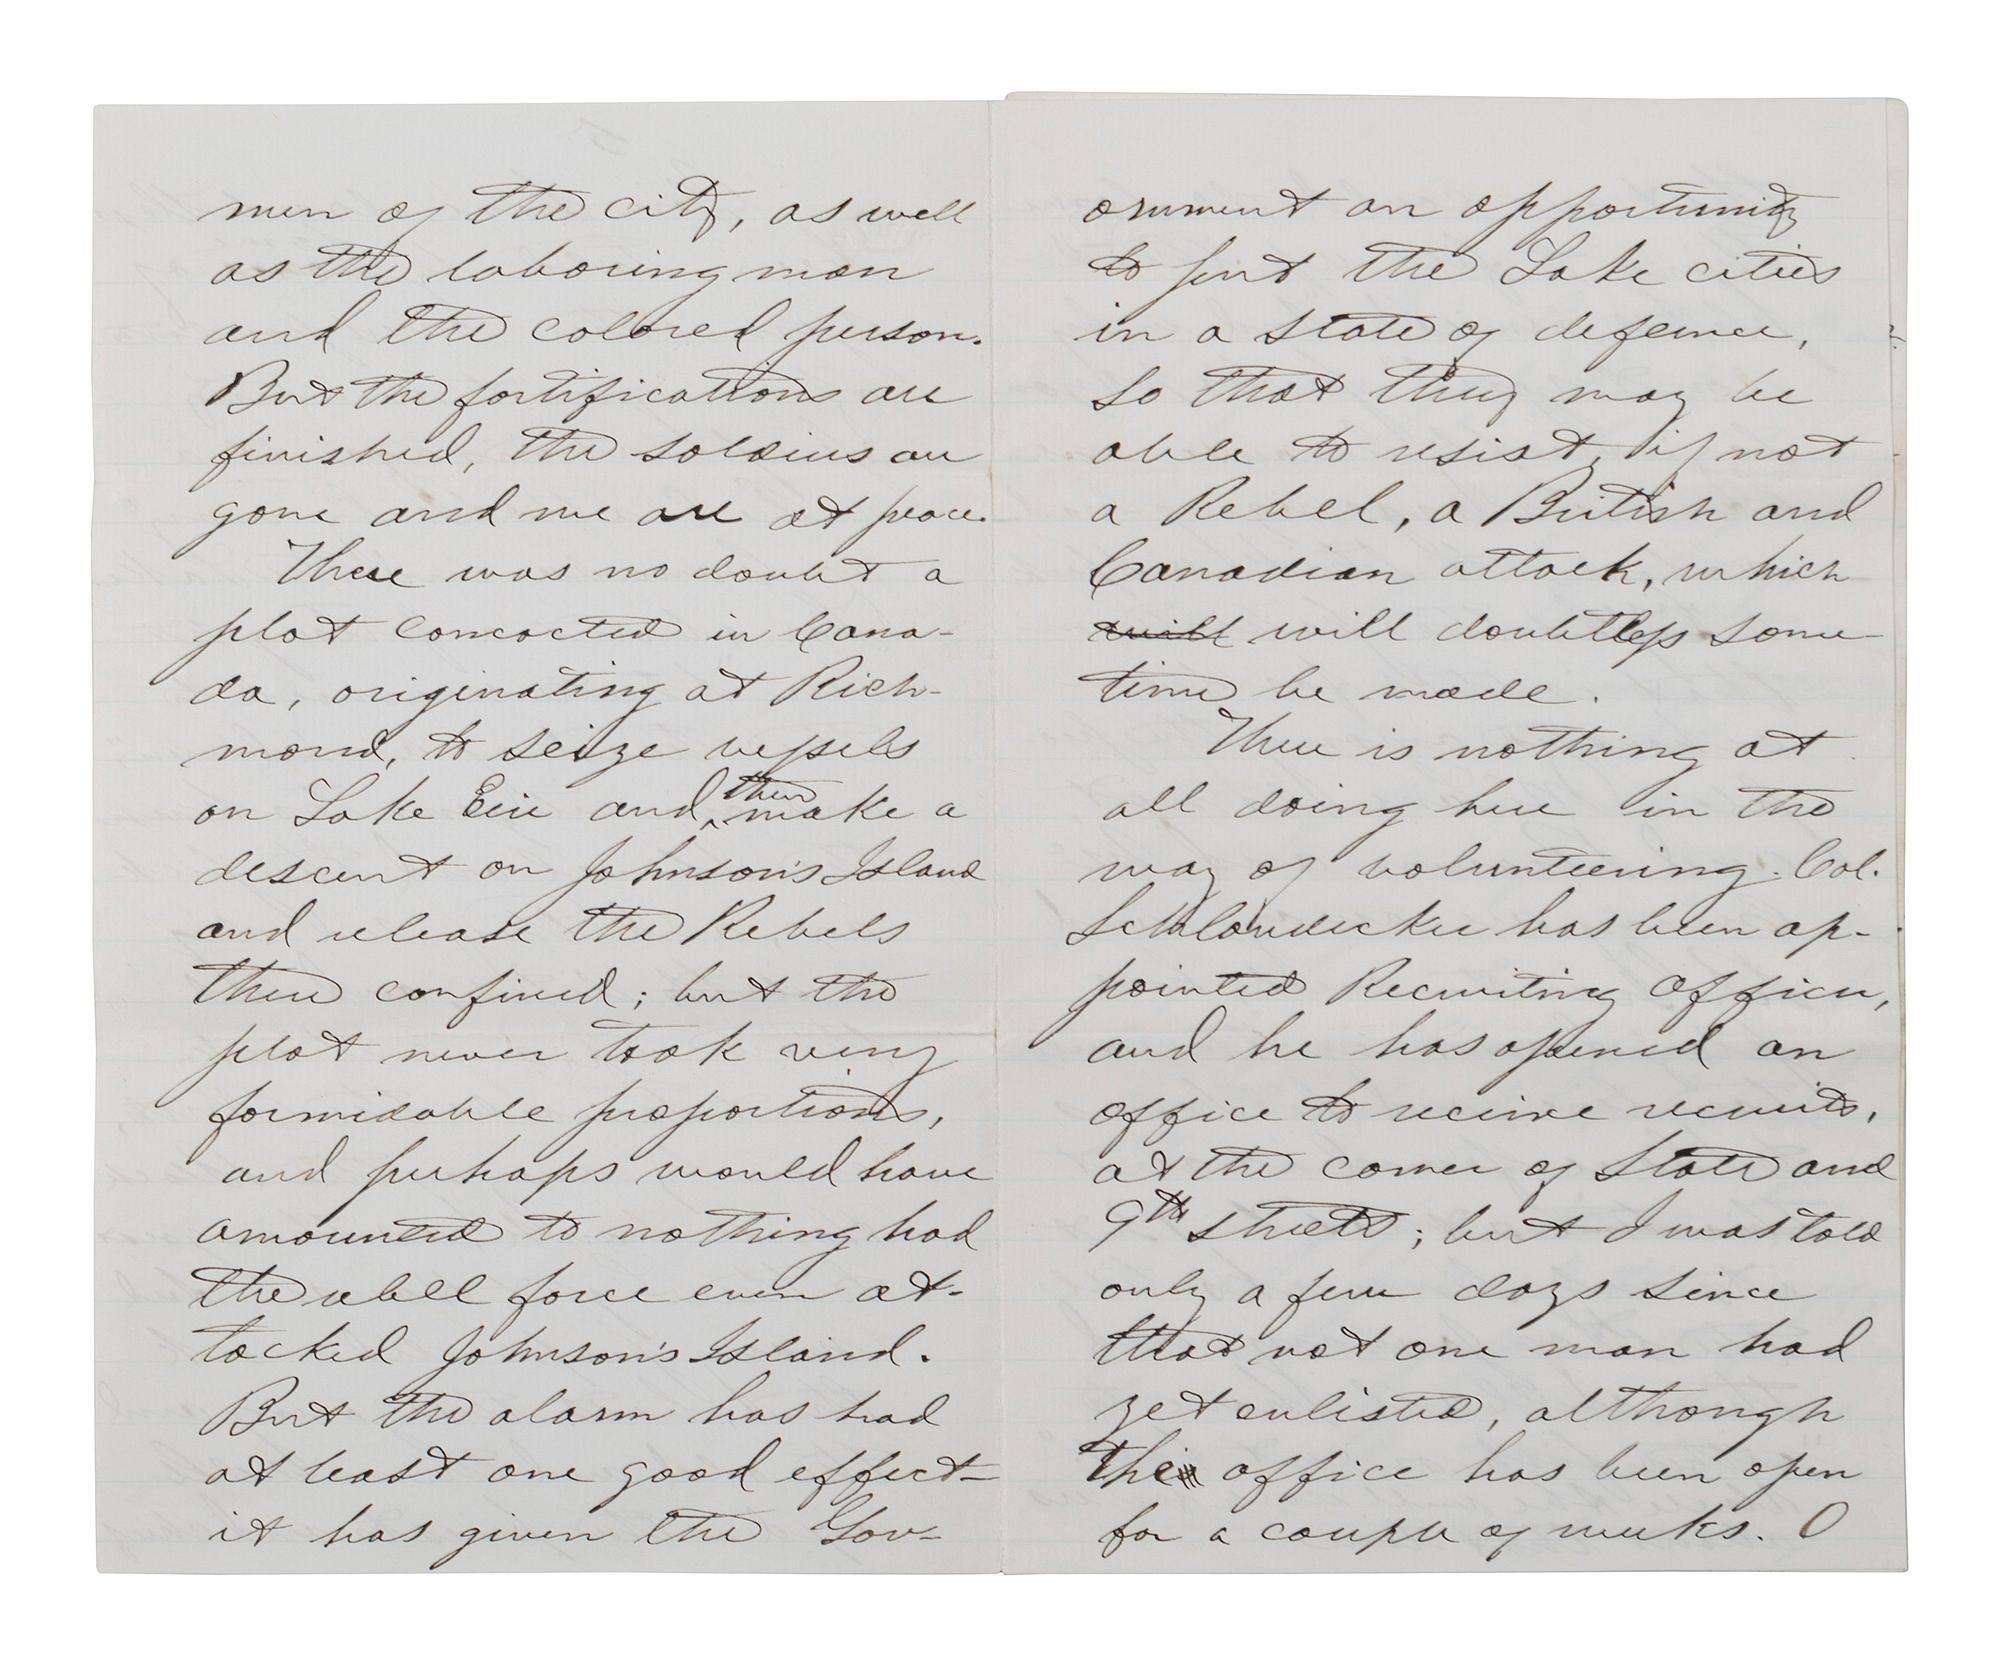 men of the city, as well
as the laboring man
and the colored person.
But the fortifications are
finished, the soldiers are
gone and we are at peace.
There was no doubt a
plot concocted in Cana-
da, originating at Rich-
mond, to seize vessels
on Lake Erie and then make a
descent on Johnson's Island
and release the Rebels
there confined; but the
plot never took very
formidable proportions,
and perhaps would have
amounted to nothing had
the rebel force even at-
tacked Johnson's Island.
But the alarm has had
at least one good effect—
it has given the Gov-
ernment an opportunity
to put the Lake cities
in a state of defence,
so that they may be
able to resist, if not
a Rebel, a British and
Canadian attack, which
will will doubtless some
time be made.
There is nothing at
all doing here in the
way of volunteering. Col.
Schlaudecker has been ap-
pointed Recruiting Officer,
and he has opened an
office to receive recruits,
at the corner of State and
9th streets; but I was told
only a few days since
that not one man had
yet enlisted, although
the office has been open
for a couple of weeks. O